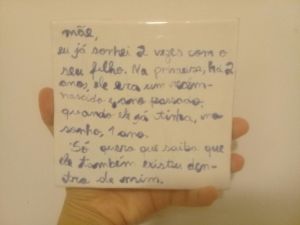 mãe,
eu já sonhei 2 vezes com o
seu filho. Na primeira, há 2
ano, ele era um recém-
nascido e ano passado,
quando ele já tinha, no
sonho, 1 ano.
Só quero que saiba que
ele também existiu den-
tro de mim.